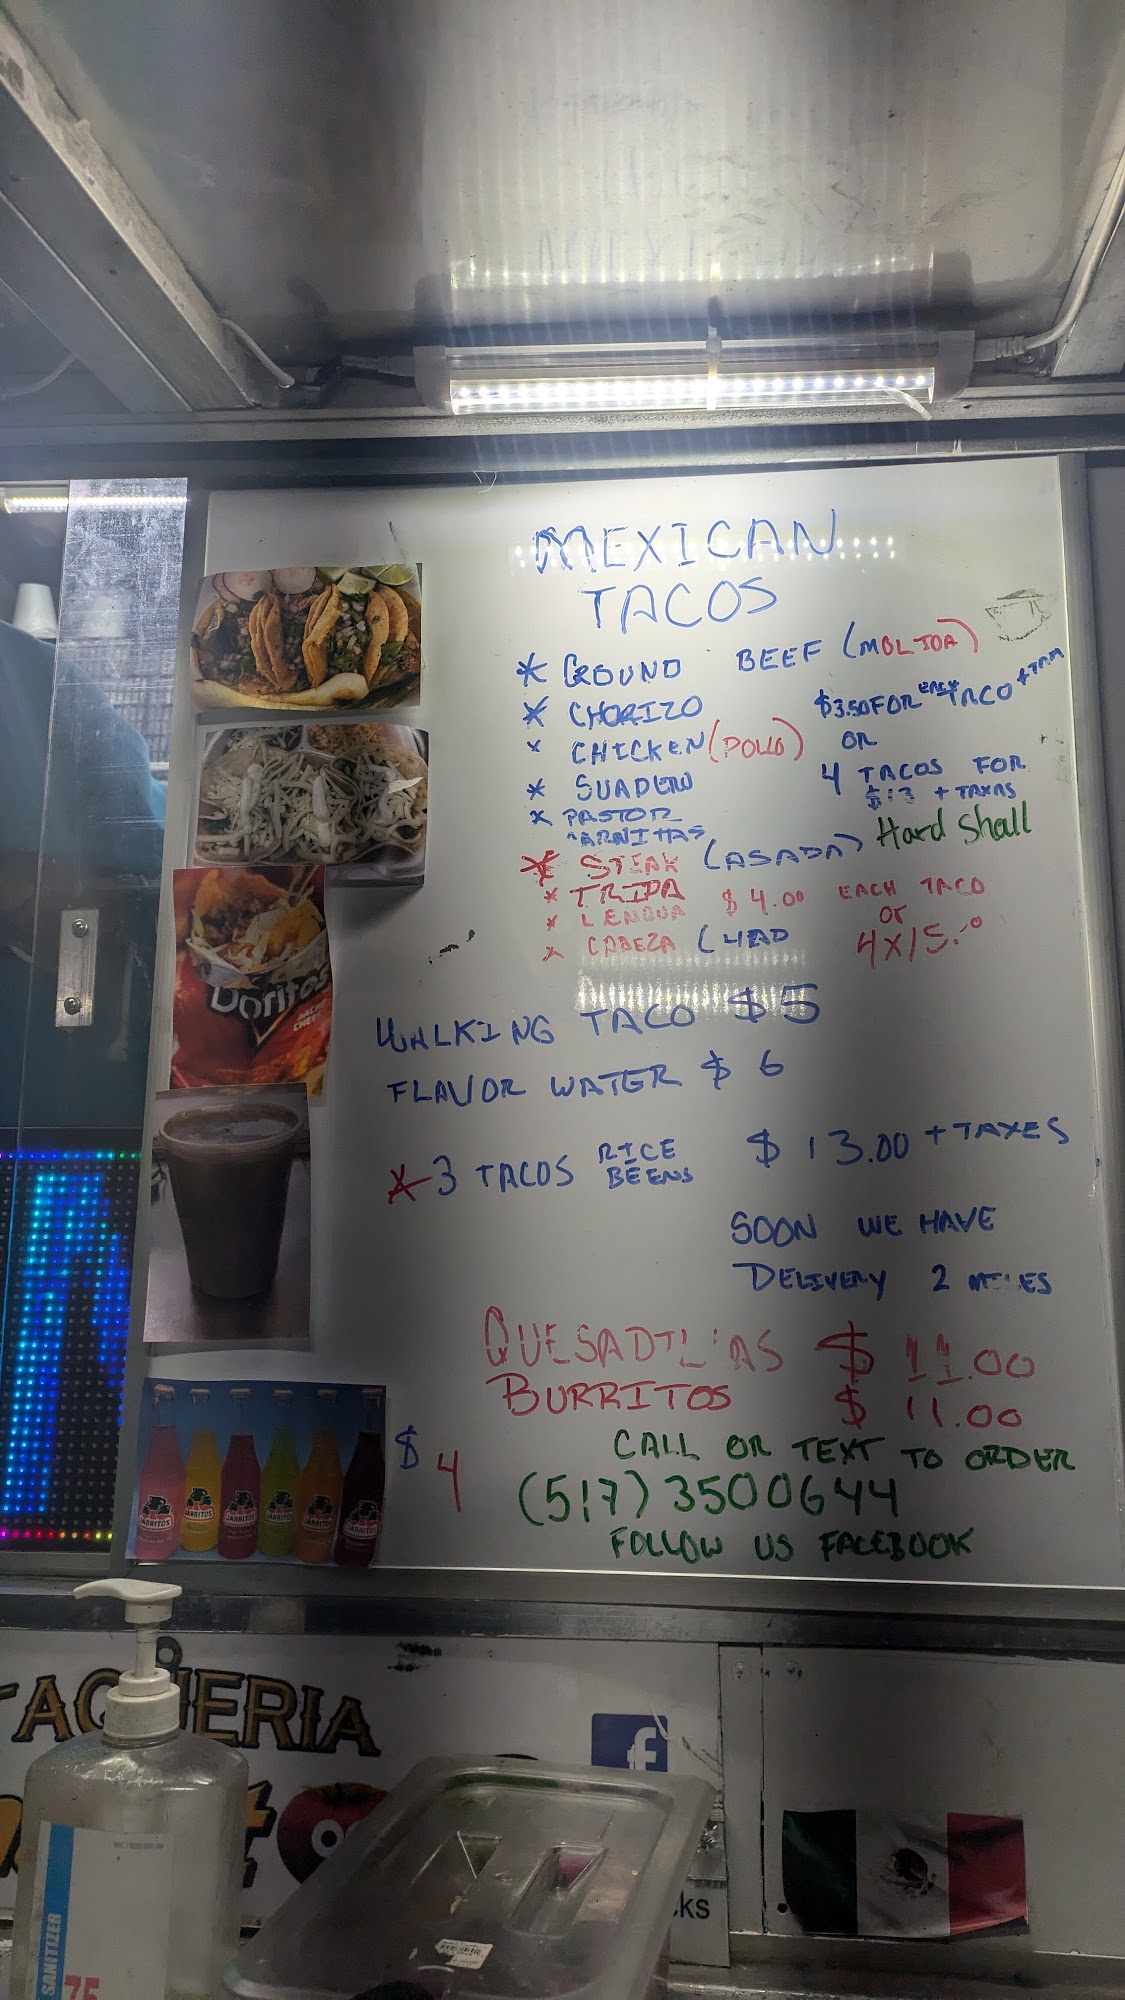 MEXICAN
TACOS
* GROUND BEEF (MOLIDA)
* CHORIZO
$3.50 FOR EACH TACO + TAX
* CHICKEN (POLLO)
OR
* SUADERO
4 TACOS FOR
$13 + TAXAS
* PASTOR
CARNITAS
Hard Shall
* STEAK (ASADA)
* TRIPA
$4.00 EACH TACO
* LENGUA
or
* CABEZA (HEAD
4X15.00
WALKING TACO $5
FLAVOR WATER $6
* 3 TACOS RICE BEENS $13.00 + TAXES
SOON WE HAVE
DELIVERY 2 MILES
QUESADILLAS $11.00
BURRITOS $11.00
$4
CALL OR TEXT TO ORDER
(517)3500644
FOLLOW US FACEBOOK
Doritos
NACHO
CHEESE
JARRITOS
JARRITOS
JARRITOS
JARRITOS
JARRITOS
JARRITOS
TAQUERIA
f
SANITIZER
75